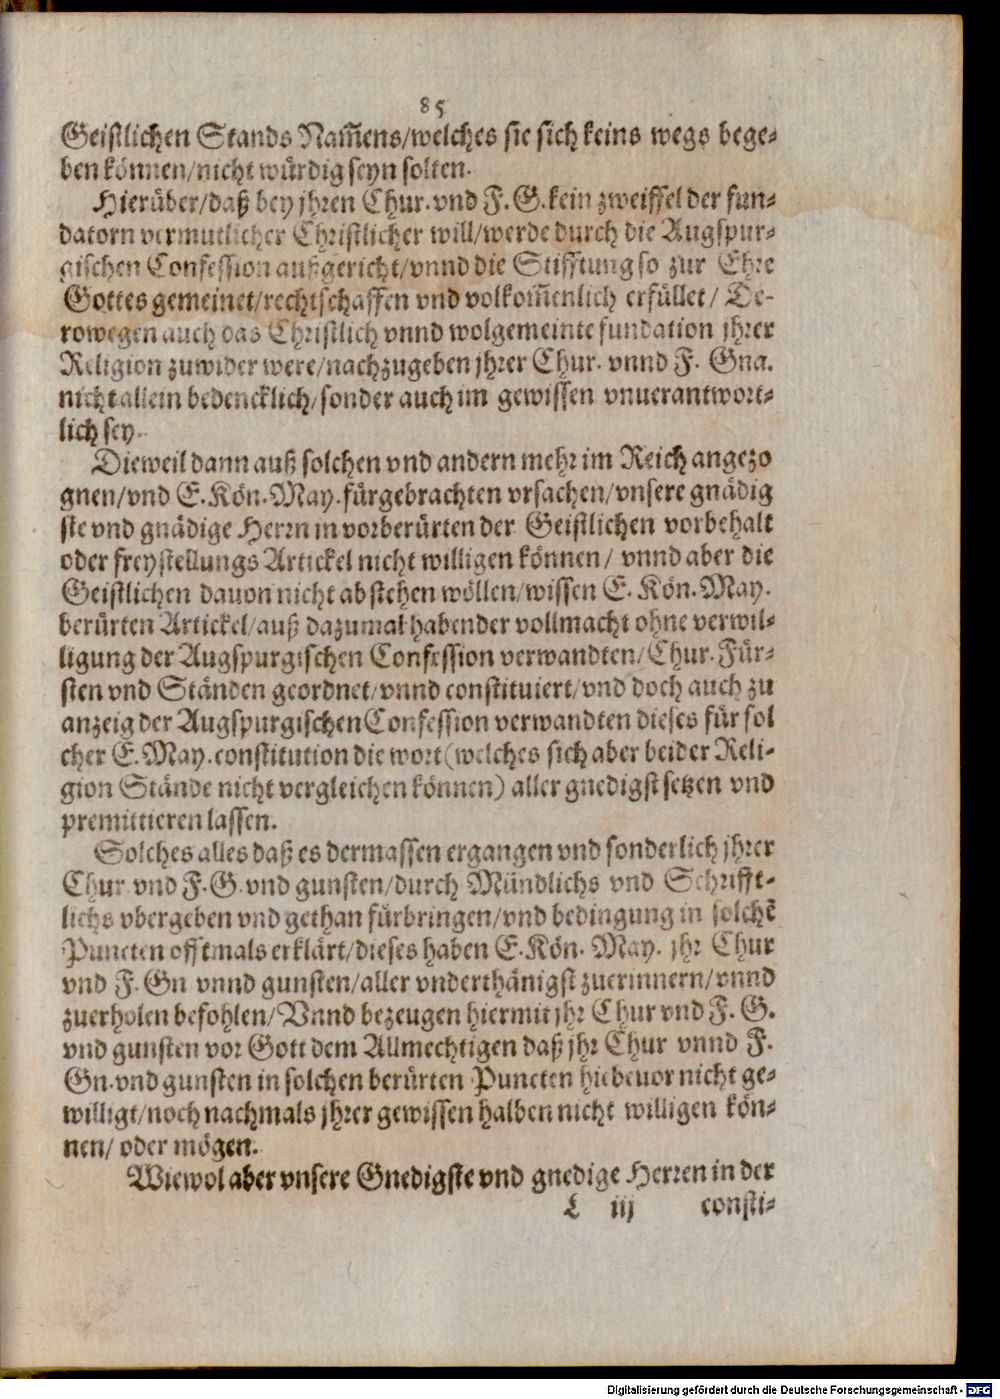 85
Geistlichen Stands Nam̃ens/welches sie sich keins wegs bege-
ben können/nicht würdig seyn solten.
Hierüber/daß bey jhren Chur. vnd F. G. kein zweiffel der fun-
datorn vermutlicher Christlicher will/werde durch die Augspur-
gischen Confession außgericht/vnnd die Stifftung so zur Ehre
Gottes gemeinet/rechtschaffen vnd volkom̃enlich erfüllet/ De-
rowegen auch das Christlich vnnd wolgemeinte fundation jhrer
Religion zuwider were/nachzugeben jhrer Chur. vnnd F. Gna.
nicht allein bedencklich/sonder auch im gewissen vnuerantwort-
lich sey.
Dieweil dann auß solchen vnd andern mehr im Reich angezo
gnen/vnd E. Kön. May. fürgebrachten vrsachen/vnsere gnädig
ste vnd gnädige Herrn in vorberürten der Geistlichen vorbehalt
oder freystellungs Artickel nicht willigen können/ vnnd aber die
Geistlichen dauon nicht abstehen wöllen/wissen E. Kön. May.
berürten Artickel/auß dazumal habender vollmacht ohne verwil-
ligung der Augspurgischen Confession verwandten/Chur. Für-
sten vnd Ständen geordnet/vnnd constituiert/vnd doch auch zu
anzeig der Augspurgischen Confession verwandten dieses für sol
cher E. May. constitution die wort (welches sich aber beider Reli-
gion Stände nicht vergleichen können) aller gnedigst setzen vnd
premittieren lassen.
Solches alles daß es dermassen ergangen vnd sonderlich jhrer
Chur vnd F. G. vnd gunsten/durch Mündlichs vnd Schrifft-
lichs vbergeben vnd gethan fürbringen/vnd bedingung in solchẽ
Puncten offtmals erklärt/dieses haben E. Kön. May. jhr Chur
vnd F. Gn vnnd gunsten/aller vnderthänigst zuerinnern/vnnd
zuerholen befohlen/Vnnd bezeugen hiermit jhr Chur vnd F. G.
vnd gunsten vor Gott dem Allmechtigen daß jhr Chur vnnd F.
Gn. vnd gunsten in solchen berürten Puncten hiebeuor nicht ge-
willigt/noch nachmals jhrer gewissen halben nicht willigen kön-
nen/ oder mögen.
Wiewol aber vnsere Gnedigste vnd gnedige Herren in der
L iij consti-
Digitalisierung gefördert durch die Deutsche Forschungsgemeinschaft - DFG